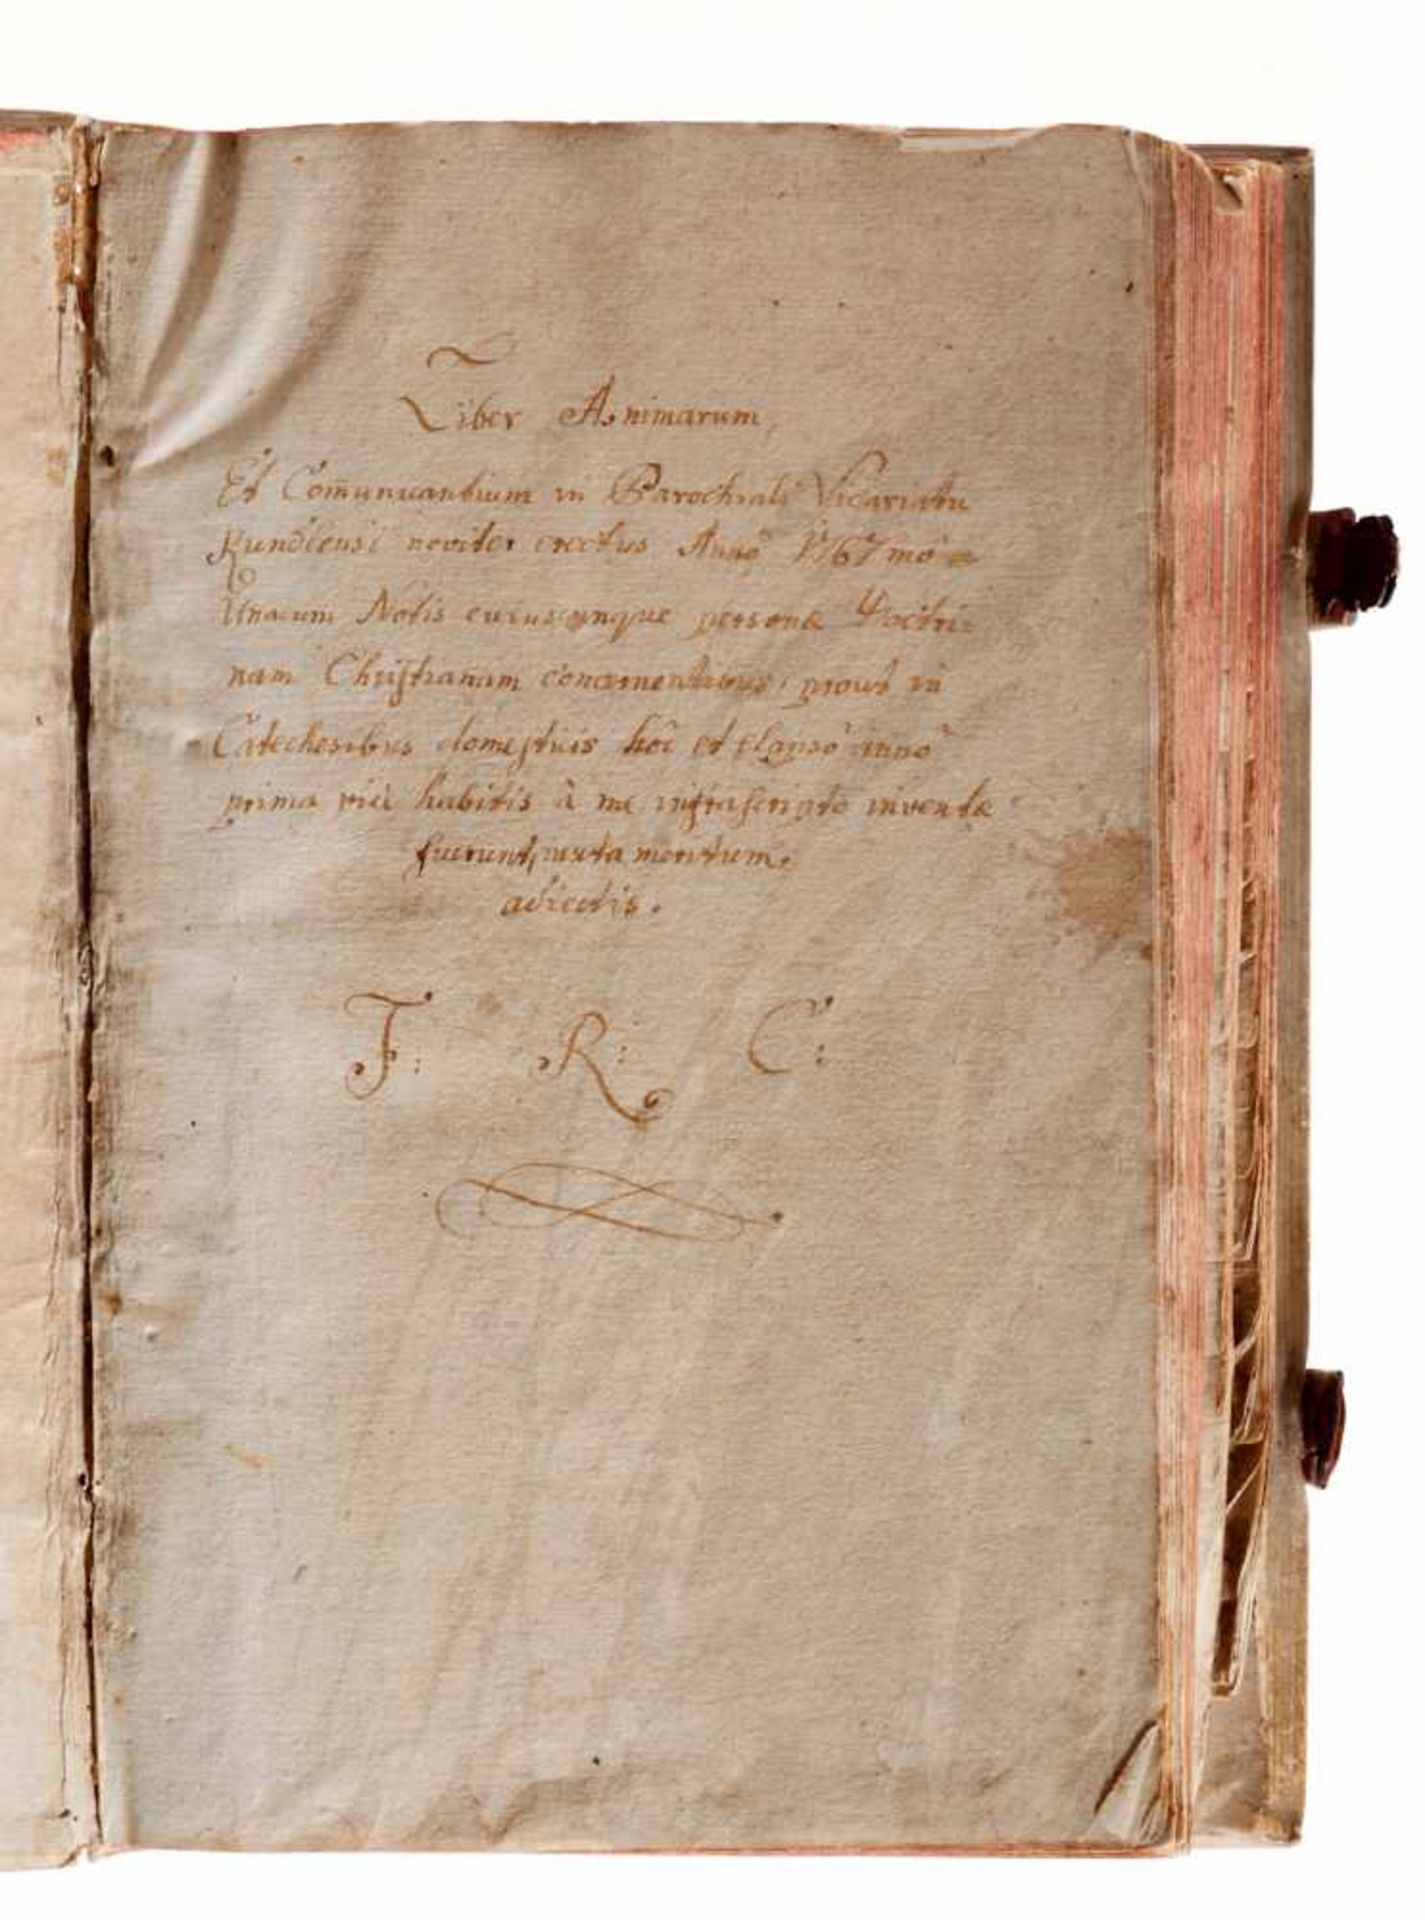 Liber Animarum,
Et Com̄unicantium in Parochiali Vicariatu
Kundlensi noviter erectus Annô 1767mô
Unacum Notis cuiuscunque personæ Doctri=
nam Christianam concernentibus, prout in
Catechesibus domesticis hôc et elapsô annô
prima vice habitis à me infrascripto inventæ
fuerunt, iuxta meritum,
adiectis.
F: R: C: